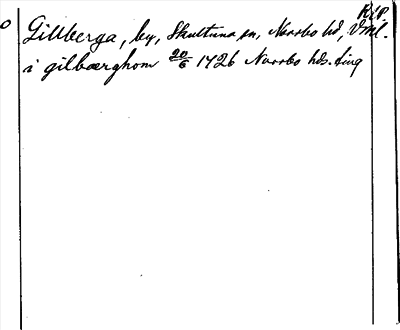 Gillberga, by, Skultuna sn, Norrbo hd, Vml.
i gilbærghom 20/6 1426 Norrbo hds. ting